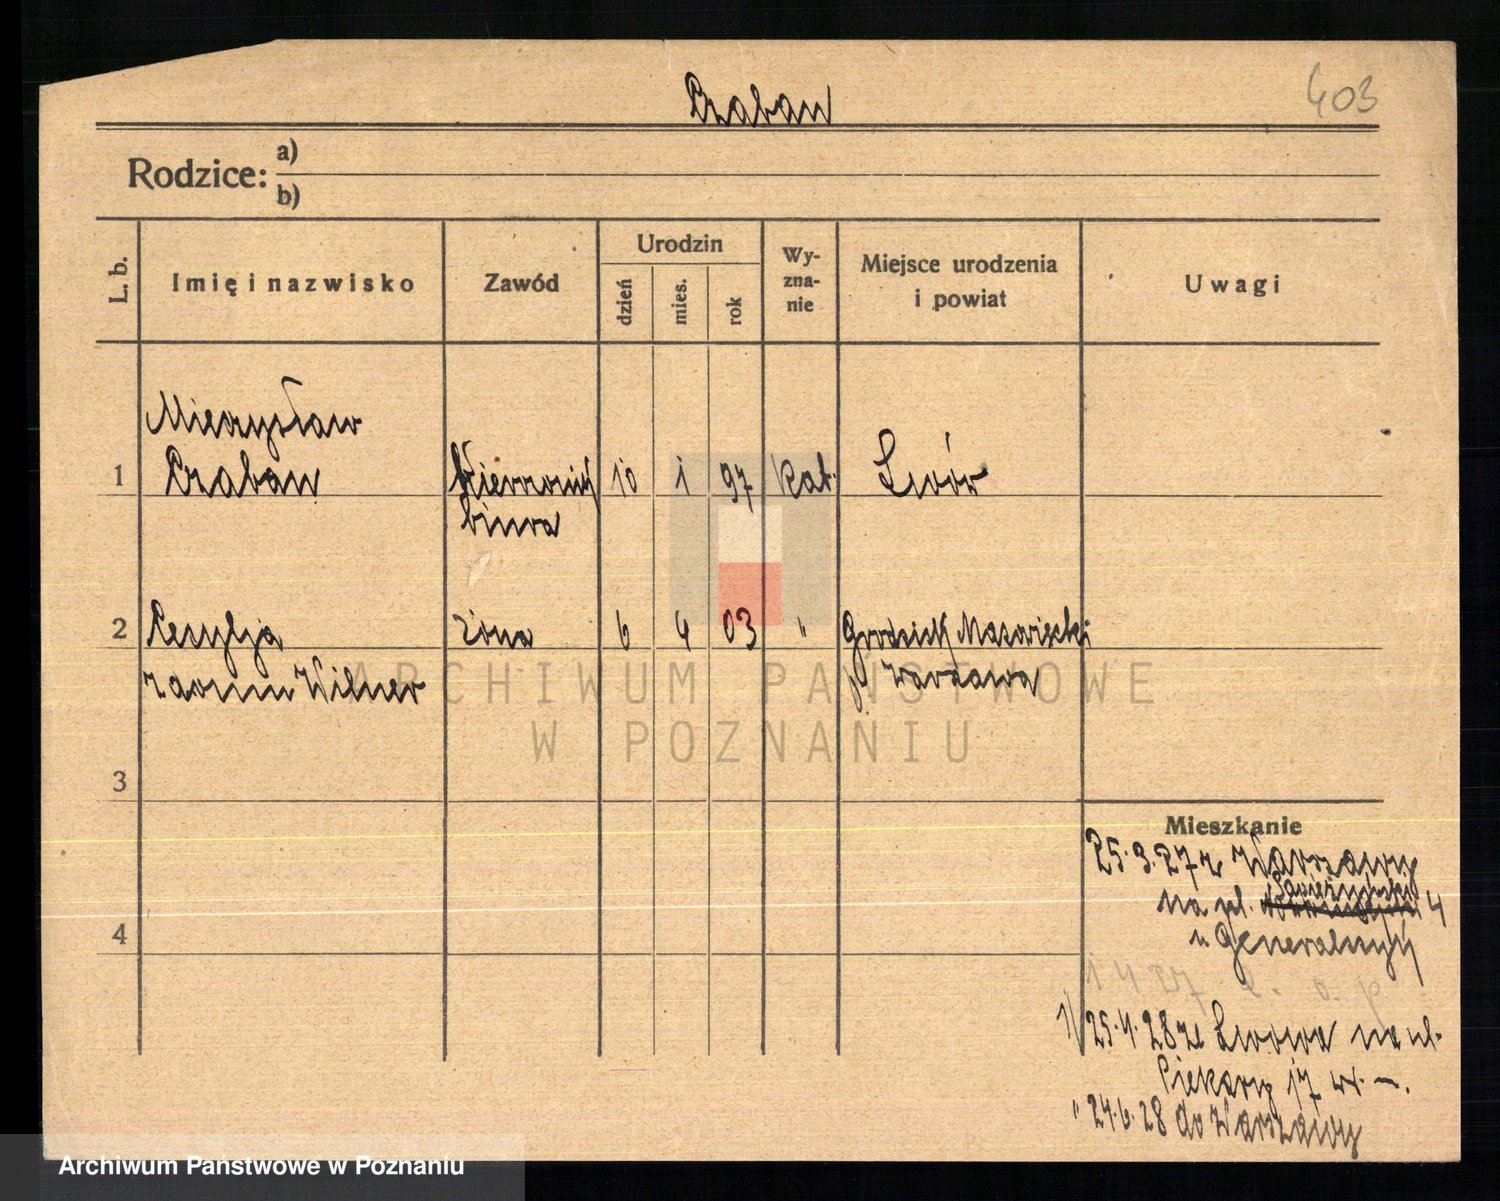 Czaban
403
Rodzice:
a)
b)
L. b.
Imię i nazwisko
Zawód
Urodzin
dzień
mies.
rok
Wy-
zna-
nie
Miejsce urodzenia
i powiat
Uwagi
Mieczysław
1 Czaban Kierownik 10 1 97 kat. Lwów
biura
2 Cecylja żona 6 4 03 " Grodzisk Mazowiecki
z domu Wilner p. Warszawa
ARCHIWUM PAŃSTWOWE
W POZNANIU
3
Mieszkanie
25.3.27 z Warszawy
Sapieżyński
na pl. 4
4
u Generalnych
1/ 25.4.28 ze Lwowa na ul.
Piekary 17 w. —.
" 24.6.28 do Warszawy
Archiwum Państwowe w Poznaniu